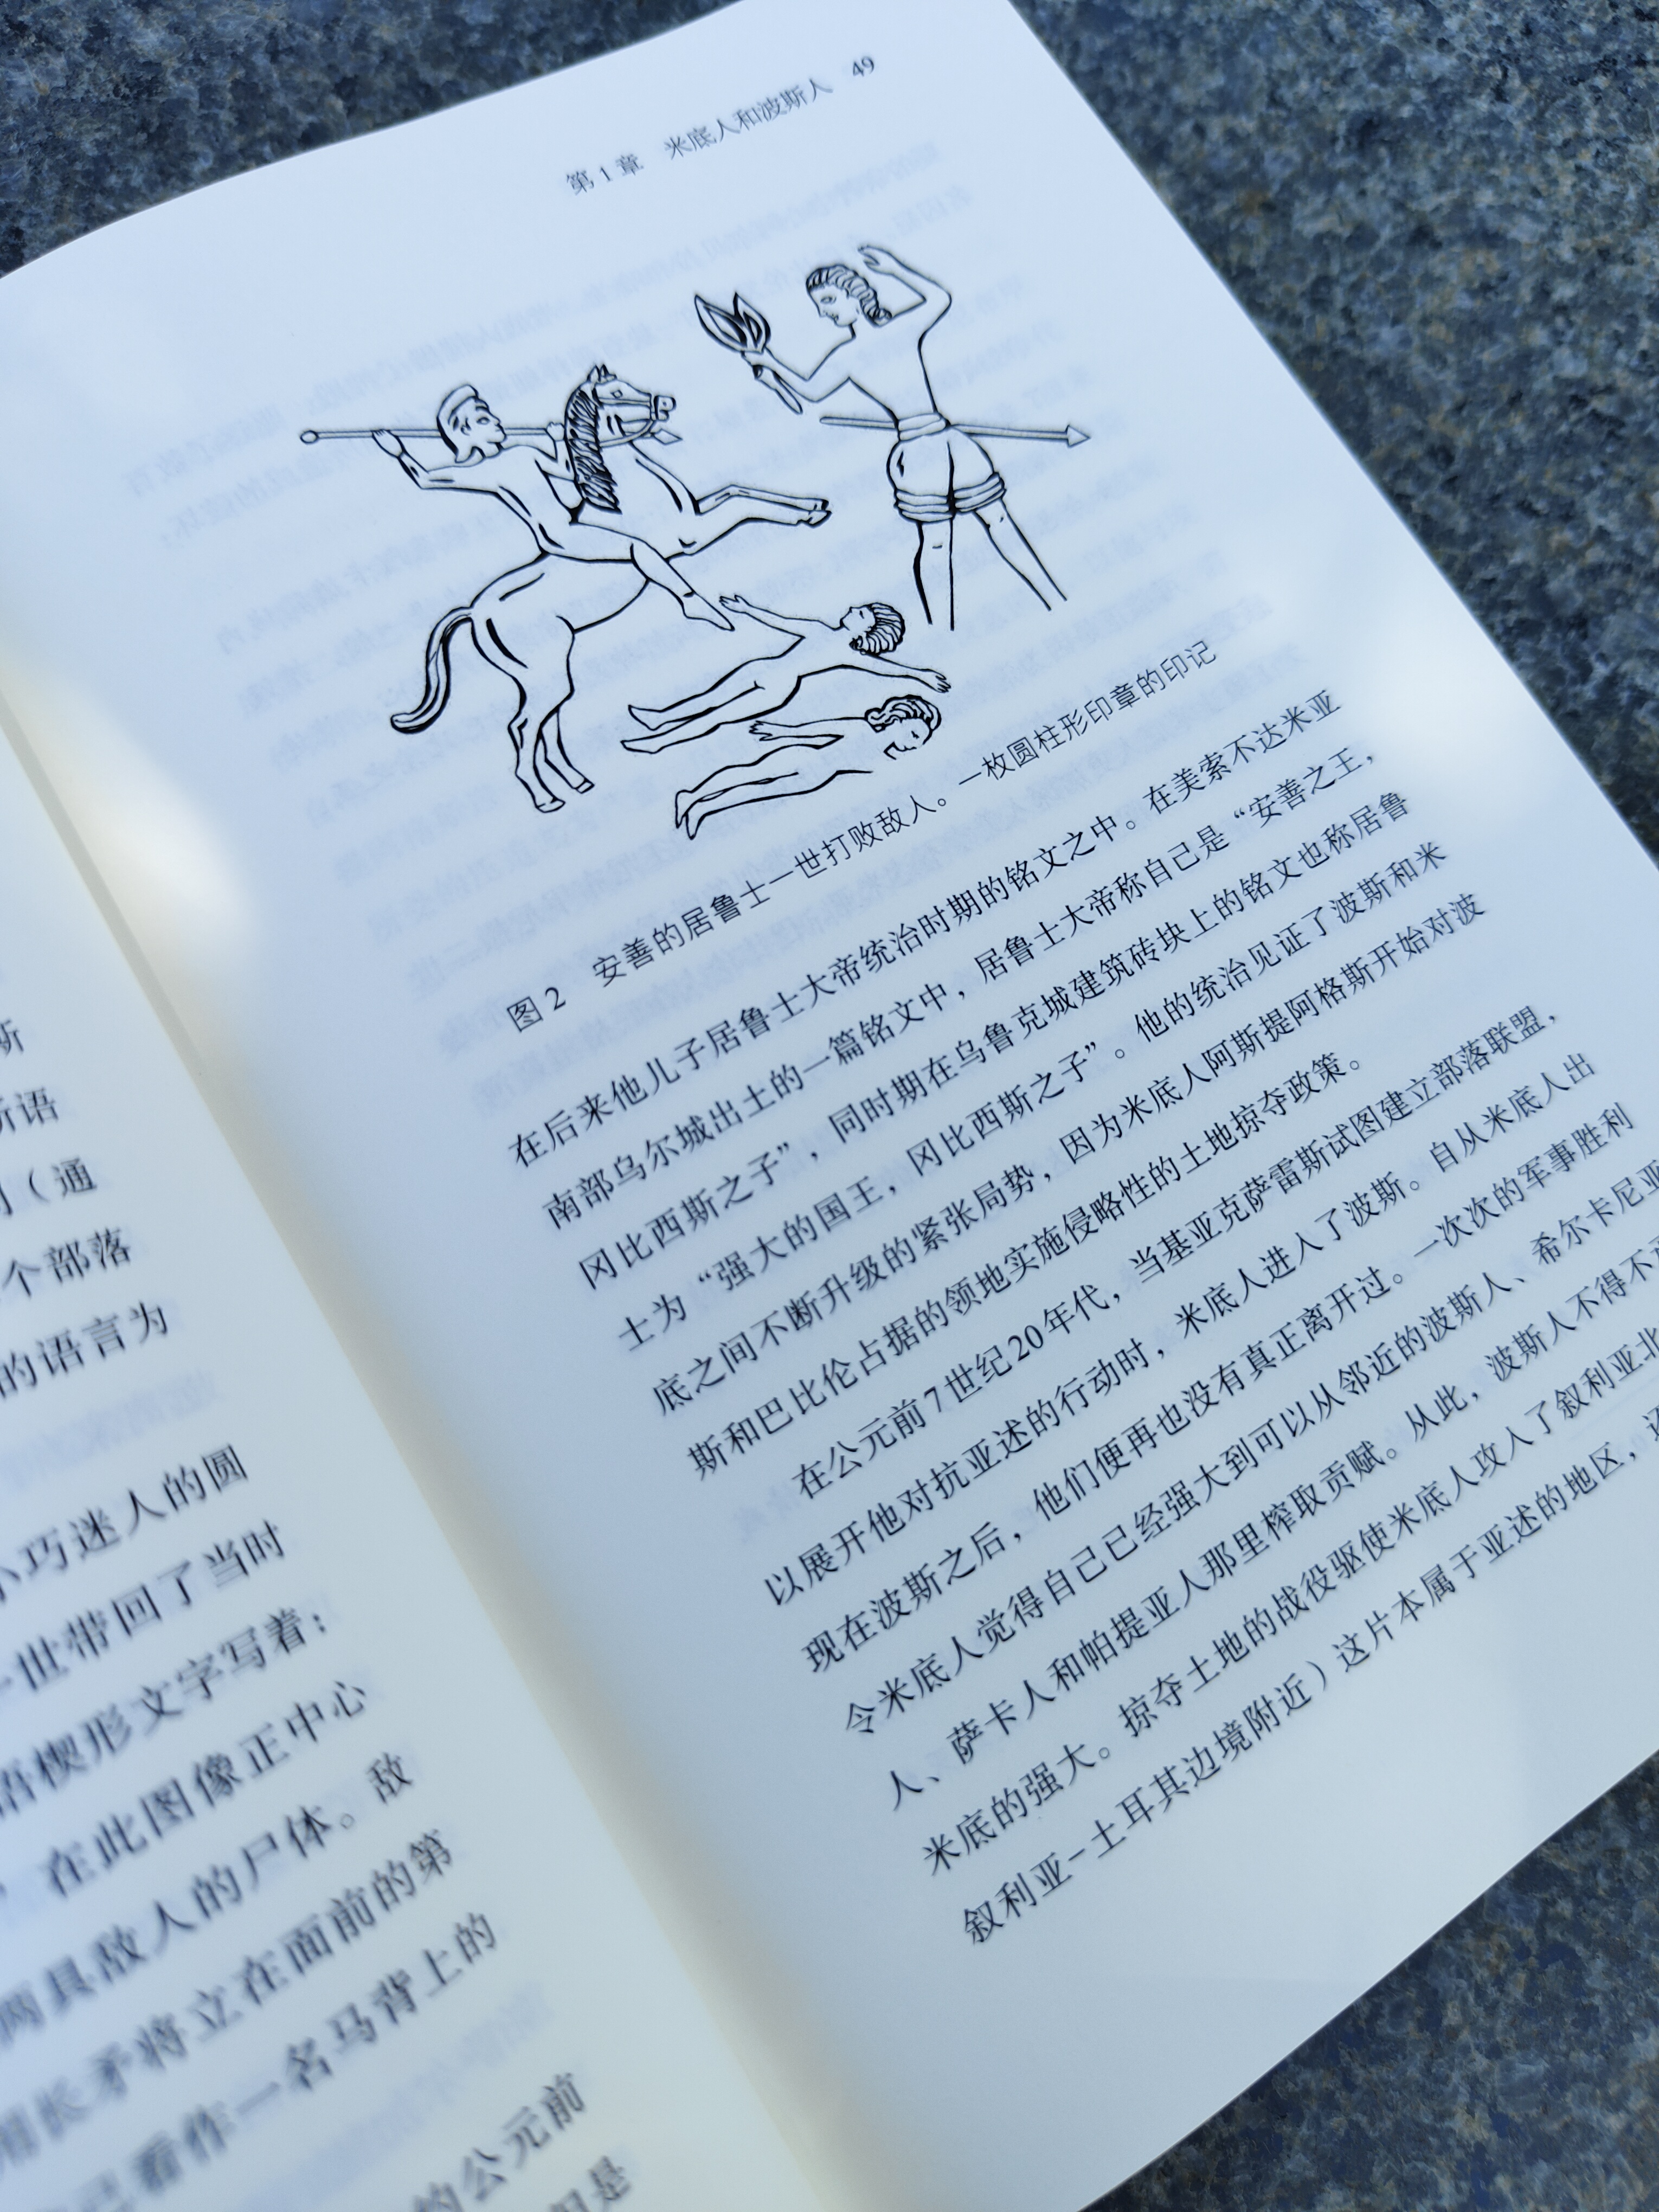 斯
斯语
（通
个部落
的语言为
小巧迷人的圆
一世带回了当时
语楔形文字写着：
在此图像正中心
两具敌人的尸体。敌
用长矛将立在面前的第
己看作一名马背上的
的公元前
但是
第1章 米底人和波斯人 49
图2 安善的居鲁士一世打败敌人。一枚圆柱形印章的印记
在后来他儿子居鲁士大帝统治时期的铭文之中。在美索不达米亚
南部乌尔城出土的一篇铭文中，居鲁士大帝称自己是“安善之王，
冈比西斯之子”，同时期在乌鲁克城建筑砖块上的铭文也称居鲁
士为“强大的国王，冈比西斯之子”。他的统治见证了波斯和米
底之间不断升级的紧张局势，因为米底人阿斯提阿格斯开始对波
斯和巴比伦占据的领地实施侵略性的土地掠夺政策。
在公元前7世纪20年代，当基亚克萨雷斯试图建立部落联盟，
以展开他对抗亚述的行动时，米底人进入了波斯。自从米底人出
现在波斯之后，他们便再也没有真正离开过。一次次的军事胜利
令米底人觉得自己已经强大到可以从邻近的波斯人、希尔卡尼亚
人、萨卡人和帕提亚人那里榨取贡赋。从此，波斯人不得不
米底的强大。掠夺土地的战役驱使米底人攻入了叙利亚北
叙利亚-土耳其边境附近）这片本属于亚述的地区，